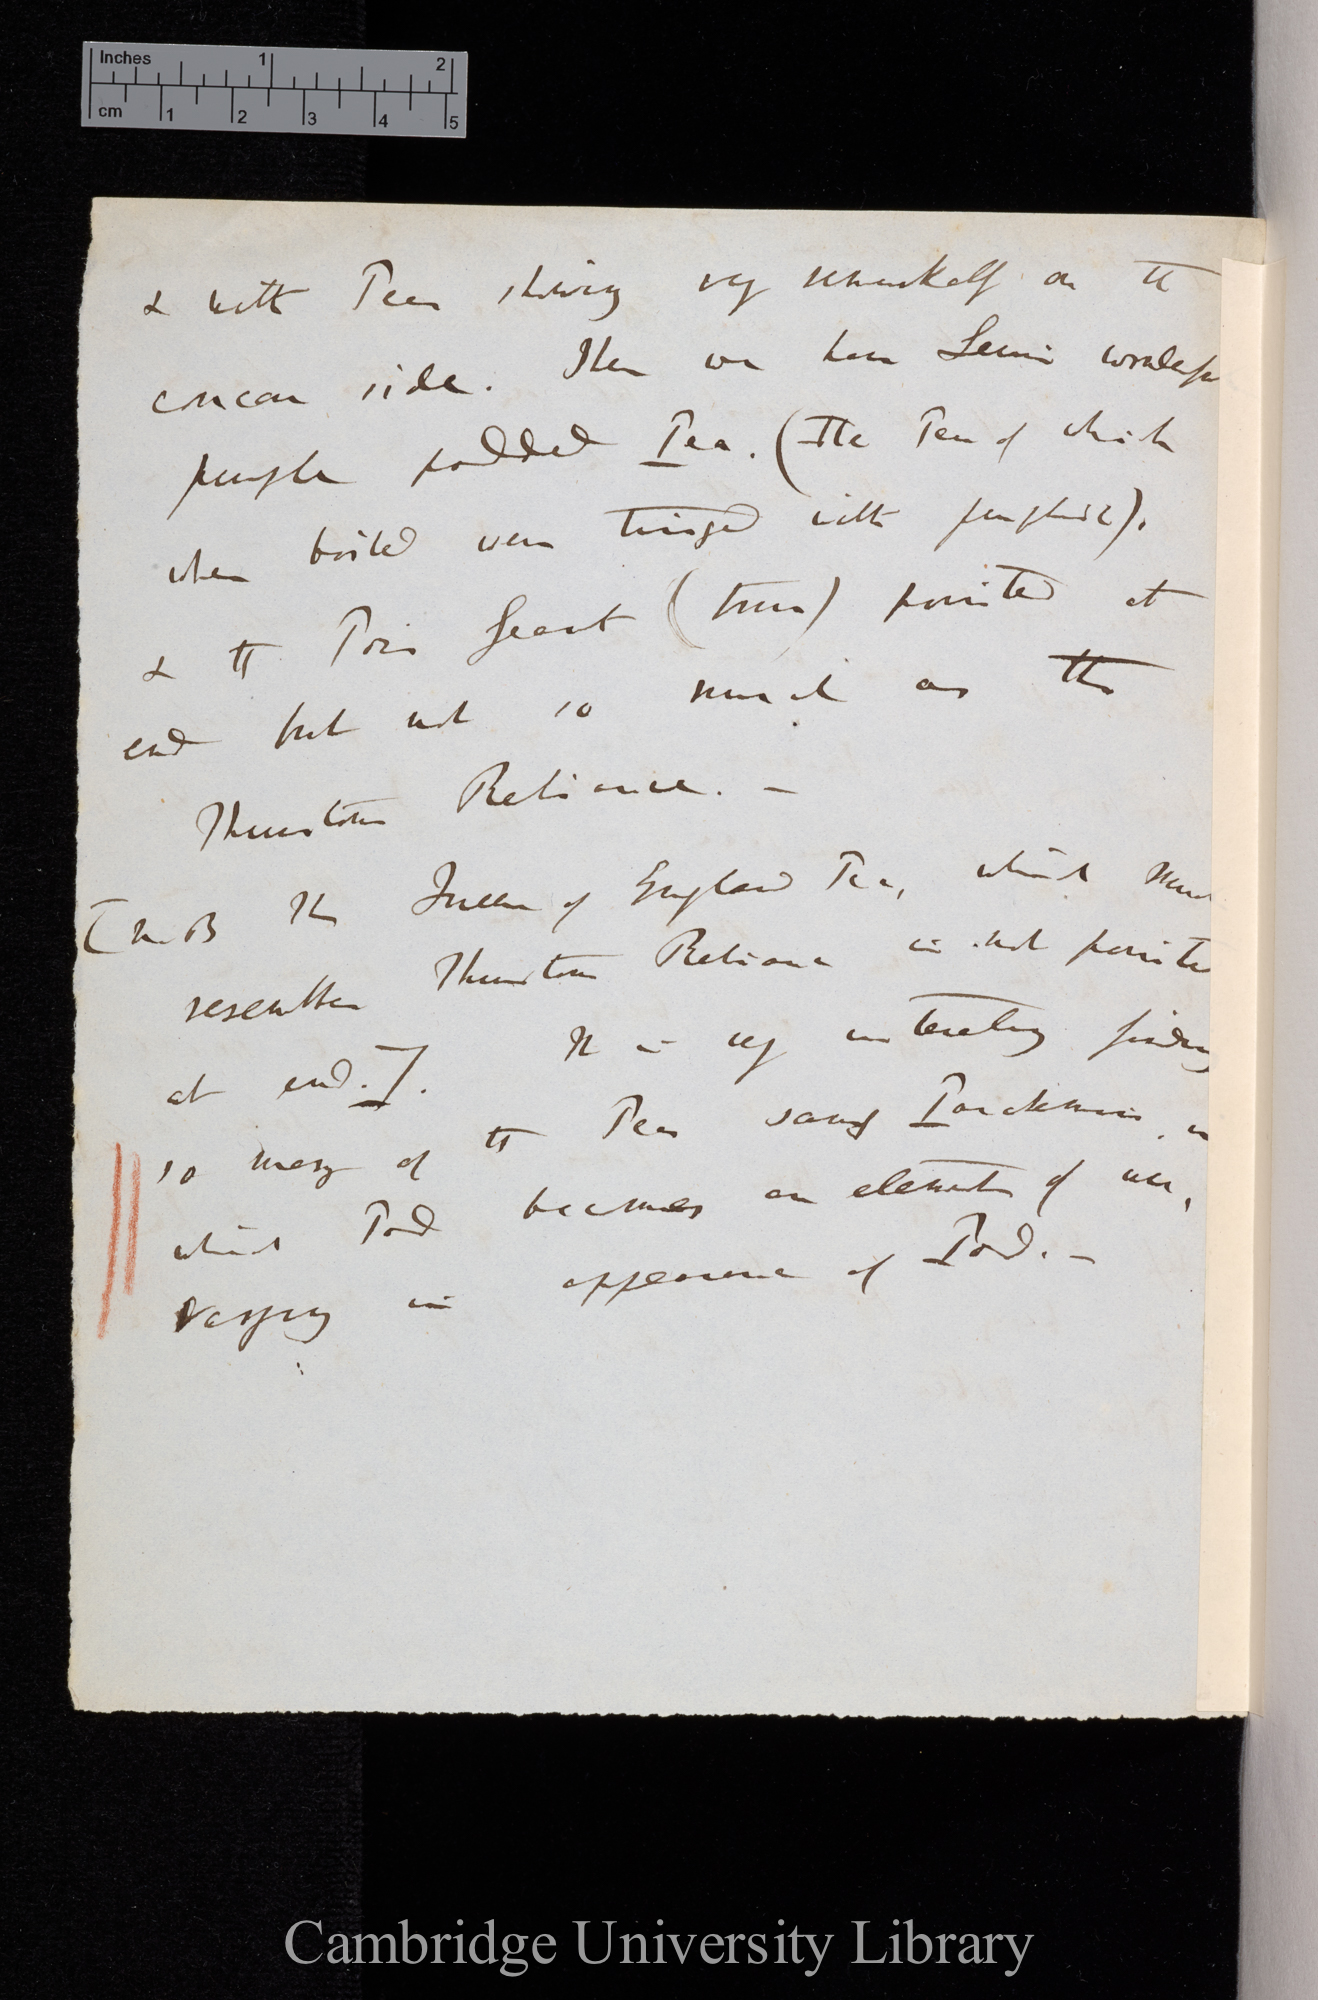 Inches 1 2
cm 1 2 3 4 5
& with Peas showing very remarkably on the
concave side. Then we have Lewis's wonderful
purple podded Pea. (The Peas of which
when boiled were tinged with purplish).
& the Pois Geant (true) pointed at
end but not so much as the
Thurston Reliance. —
[N.B The Queen of England Pea, which much
resembles Thurston Reliance is not pointed
at end.]. It is very interesting finding
so many of the Peas varying Parchment, in
which Pod becomes an element of use,
varying in appearance of Pod. —
Cambridge University Library